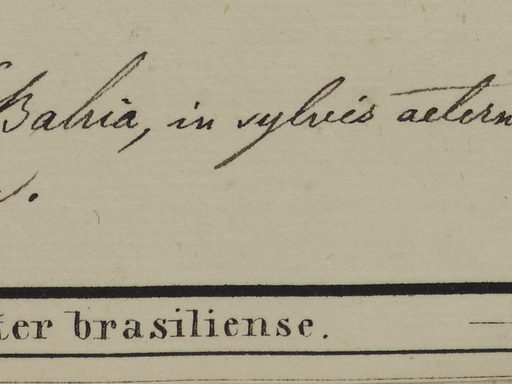 Bahia, in sylvis aetern
.
ter brasiliense.